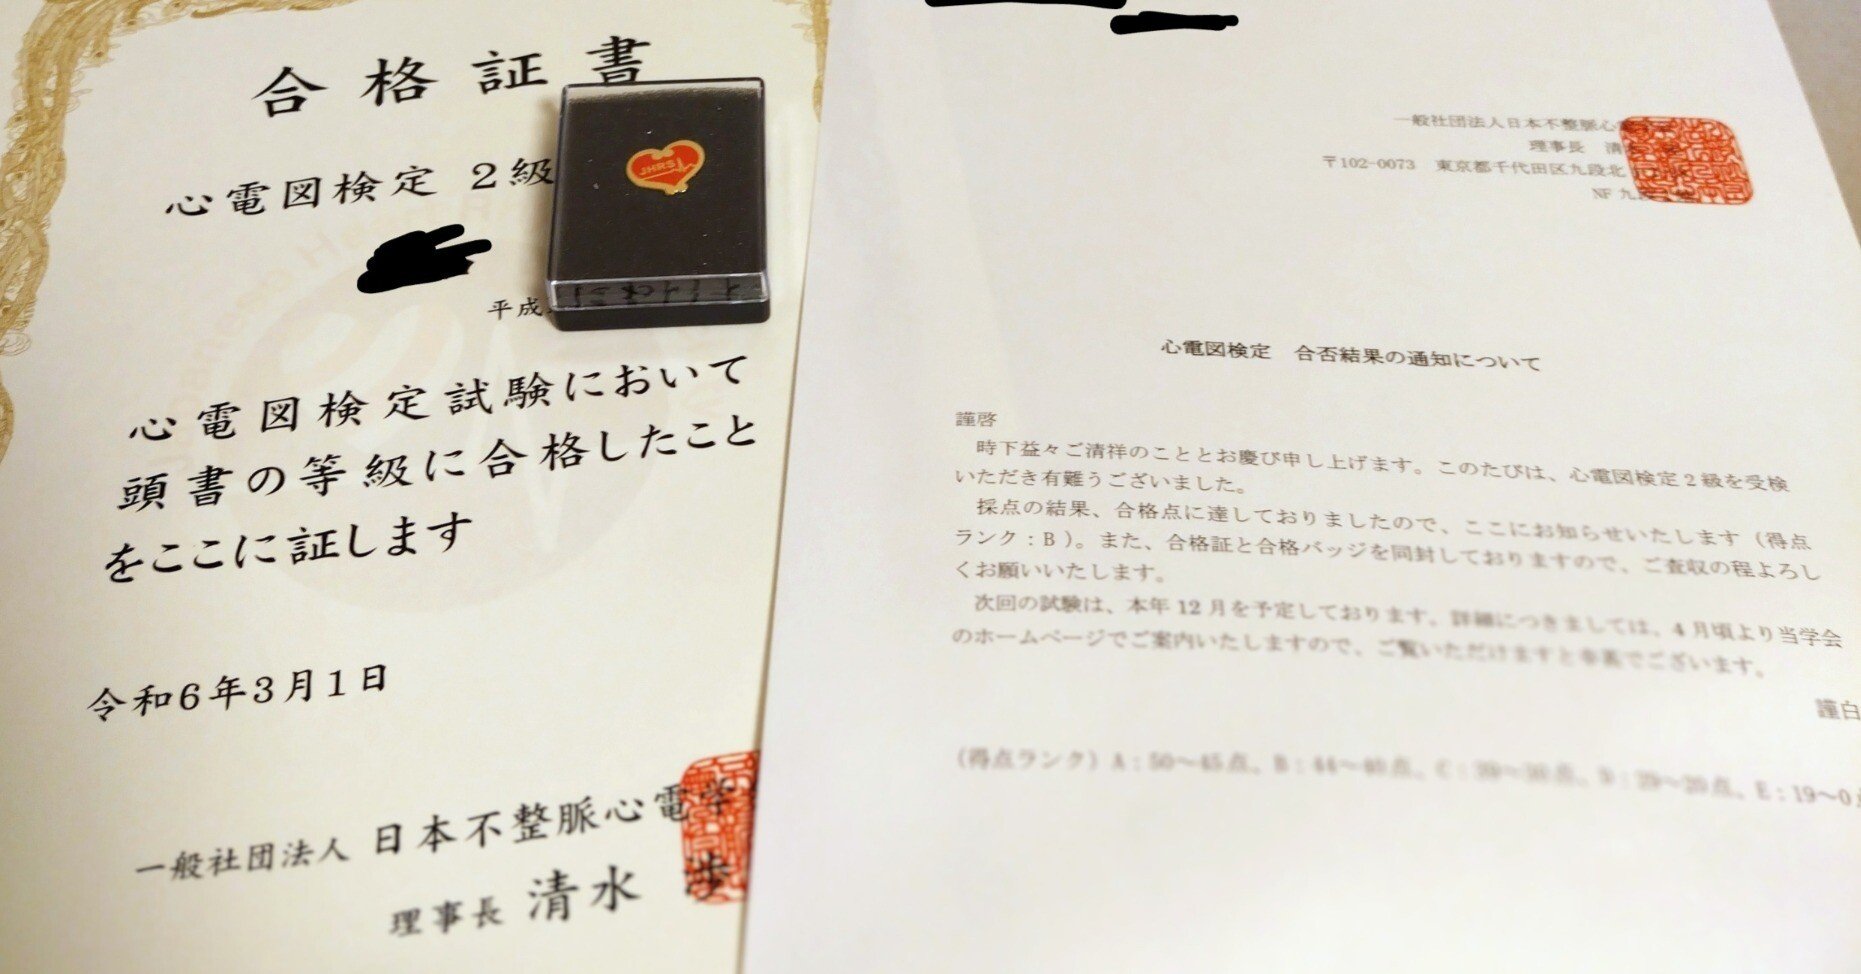 合格証書
心電図検定 2級
平成
心電図検定試験において
頭書の等級に合格したこと
をここに証します
令和6年3月1日
一般社団法人 日本不整脈心電学
理事長 清水 渉
JHRS
一般社団法人日本不整脈心
理事長 清
〒102-0073 東京都千代田区九段北
NF 九
心電図検定 合否結果の通知について
謹啓
時下益々ご清祥のこととお慶び申し上げます。このたびは、心電図検定2級を受検
いただき有難うございました。
採点の結果、合格点に達しておりましたので、ここにお知らせいたします（得点
ランク：B）。また、合格証と合格バッジを同封しておりますので、ご査収の程よろし
くお願いいたします。
次回の試験は、本年12月を予定しております。詳細につきましては、4月頃より当学会
のホームページでご案内いたしますので、ご覧いただけますと幸甚でございます。
謹白
（得点ランク）A：50～45点、B：44～40点、C：39～30点、D：29～20点、E：19～0